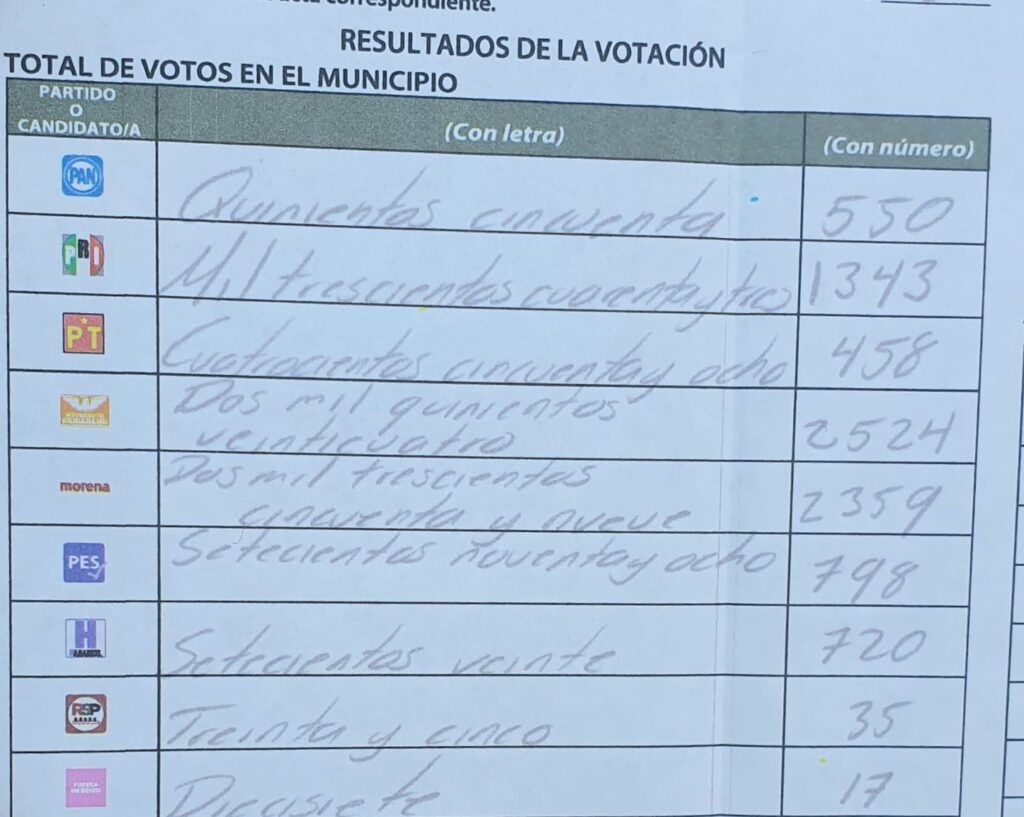 correspondiente.
RESULTADOS DE LA VOTACIÓN
TOTAL DE VOTOS EN EL MUNICIPIO
PARTIDO
O
CANDIDATO/A
(Con letra)
(Con número)
PAN
Quinientos cincuenta
550
PRI
Mil trescientos cuarenta y tres
1343
PT
Cuatrocientos cincuenta y ocho
458
Dos mil quinientos
veinticuatro
2524
morena
Dos mil trescientos
cincuenta y nueve
2359
PES
Setecientos noventa y ocho
798
H
Setecientos veinte
720
RSP
Treinta y cinco
35
FUERZA
Diecisiete
17